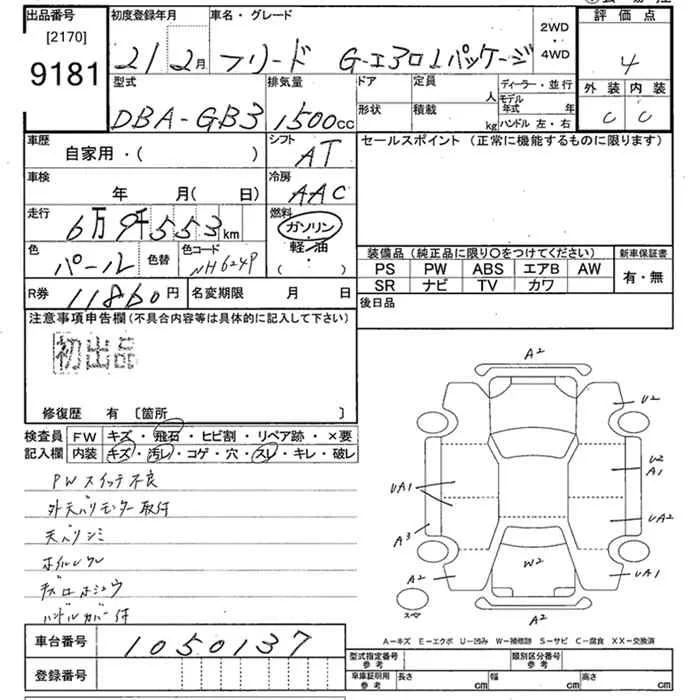 出品番号 [2170] 9181
初度登録年月 21 2月
車名・グレード フリード G-エアロ パッケージ
2WD・4WD
評価点 4
外装 C 内装 C
型式 DBA-GB3
排気量 1500cc
ドア 定員 人
形状 積載 kg
ディーラー・並行
モデル年式 年
ハンドル 左・右
車歴 自家用・( )
シフト AT
セールスポイント (正常に機能するものに限ります)
車検 年 月( 日)
冷房 AAC
走行 6万9千553km
燃料 ガソリン
軽油
( ・ )
色 パール 色替 色コード NH624P
装備品(純正品に限り○をつけてください) 新車保証書
PS PW ABS エアB AW 有・無
SR ナビ TV カワ
R券 11860円 名変期限 月 日
後日品
注意事項申告欄(不具合内容等は具体的に記入して下さい)
初出品
修復歴 有 〔箇所 〕
検査員記入欄
FW キズ・飛石・ヒビ割・リペア跡・×要
内装 キズ・汚レ・コゲ・穴・スレ・キレ・破レ
PWスイッチ不良
外天バリモニター取付
天バリシミ
ハンドルカバー付
A2
U2
U2
A1
UA1
UA2
A3
W2
A2
UA1
スペア
A2
A-キズ E-エクボ U-凹み W-補修跡 S-サビ C-腐食 XX-交換済
車台番号 1050137
登録番号
型式指定番号 参考 類別区分番号 参考
車庫証明用 参考 長さ cm 幅 cm 高さ cm